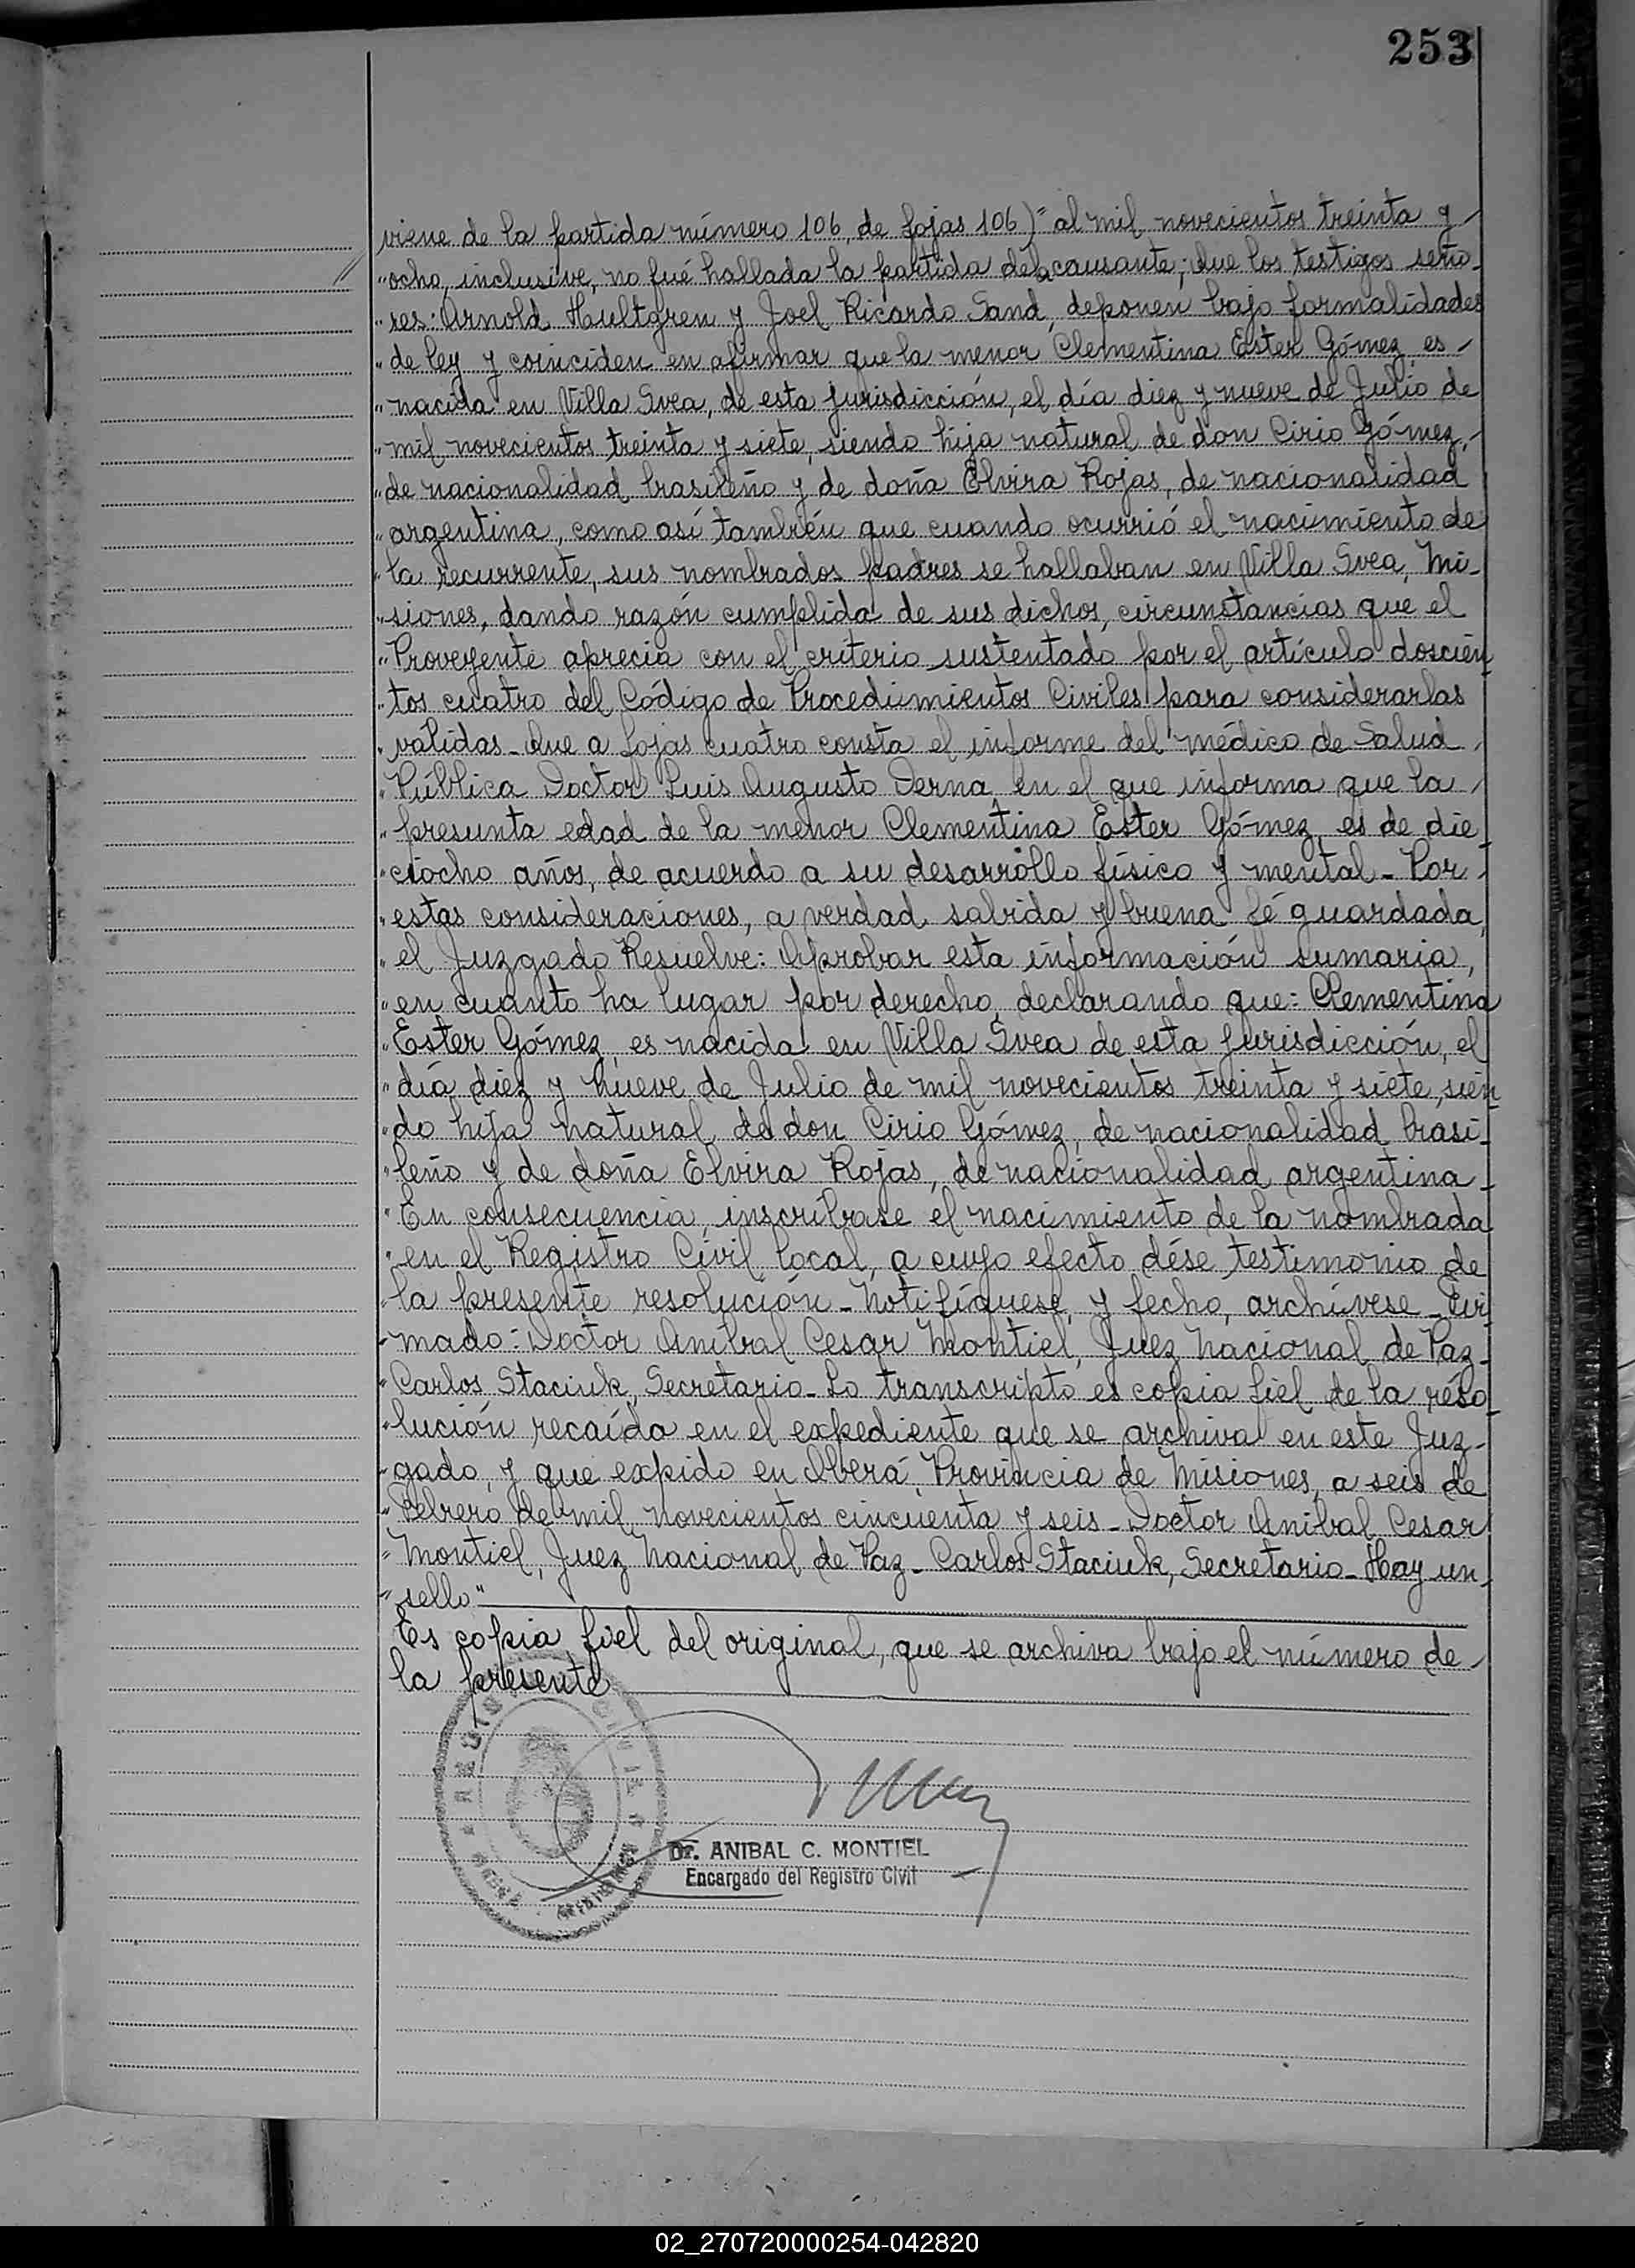 253
viene de la partida número 106, de fojas 106)" al mil novecientos treinta y
"ocho, inclusive, no fué hallada la partida de la causante; Que los testigos seño-
"res: Arnold Hultgren y Joel Ricardo Sand, deponen bajo formalidades
"de ley y coinciden en afirmar que la menor Clementina Ester Gómez, es
"nacida en Villa Svea, de esta jurisdicción, el día diez y nueve de Julio de
"mil novecientos treinta y siete, siendo hija natural de don Cirio Gómez,
"de nacionalidad brasileño y de doña Elvira Rojas, de nacionalidad
"argentina, como así también que cuando ocurrió el nacimiento de
"la recurrente, sus nombrados padres se hallaban en Villa Svea, Mi-
"siones, dando razón cumplida de sus dichos, circunstancias que el
"Proveyente aprecia con el criterio sustentado por el artículo doscien-
"tos cuatro del Código de Procedimientos Civiles para considerarlas
"validas_ Que a fojas cuatro consta el informe del médico de Salud
"Pública Doctor Luis Augusto Derna, en el que informa que la
"presunta edad de la menor Clementina Ester Gómez, es de die-
"ciocho años, de acuerdo a su desarrollo físico y mental_ Por
"estas consideraciones, a verdad sabida y buena fé guardada,
"el Juzgado Resuelve: Aprobar esta información sumaria,
"en cuanto ha lugar por derecho, declarando que: Clementina
"Ester Gómez, es nacida en Villa Svea de esta jurisdicción, el
"día diez y nueve de Julio de mil novecientos treinta y siete, sien-
"do hija natural de don Cirio Gómez, de nacionalidad brasi-
"leño y de doña Elvira Rojas, de nacionalidad argentina_
"En consecuencia, inscríbase el nacimiento de la nombrada
"en el Registro Civil local, a cuyo efecto dése testimonio de
"la presente resolución_ Notifíquese, y fecho, archívese_ Fir-
"mado: Doctor Anibal Cesar Montiel, Juez Nacional de Paz_
"Carlos Staciuk, Secretario_ Lo transcripto es copia fiel de la reso-
"lución recaída en el expediente que se archiva en este Juz-
"gado, y que expido en Oberá, Provincia de Misiones, a seis de
"Febrero de mil novecientos cincuenta y seis_ Doctor Anibal Cesar
"Montiel, Juez Nacional de Paz_ Carlos Staciuk, Secretario_ Hay un
"sello"
Es copia fiel del original, que se archiva bajo el número de
la presente
Dr. ANIBAL C. MONTIEL
Encargado del Registro Civil
02_270720000254-042820